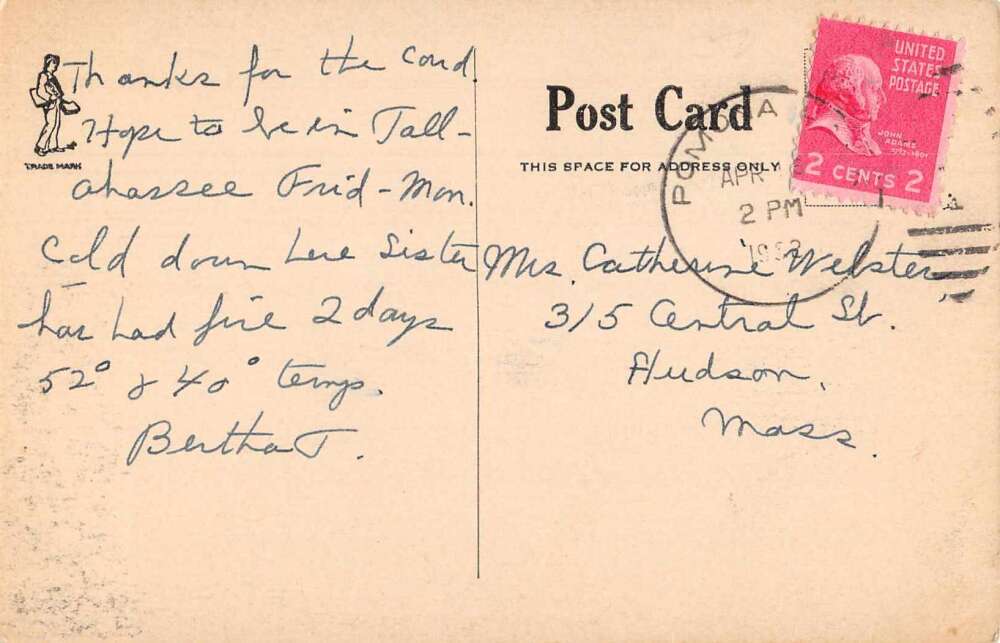 Thanks for the card.
Hope to be in Tall-
ahassee Frid-Mon.
Cold down here Sister
has had fire 2 days
52° & 40° temps.
Bertha T.
TRADE MARK
Post Card
THIS SPACE FOR ADDRESS ONLY
Mrs. Catherine Webster
315 Central St.
Hudson,
Mass.
POMONA
APR
2 PM
UNITED
STATES
POSTAGE
JOHN
ADAMS
2 CENTS 2